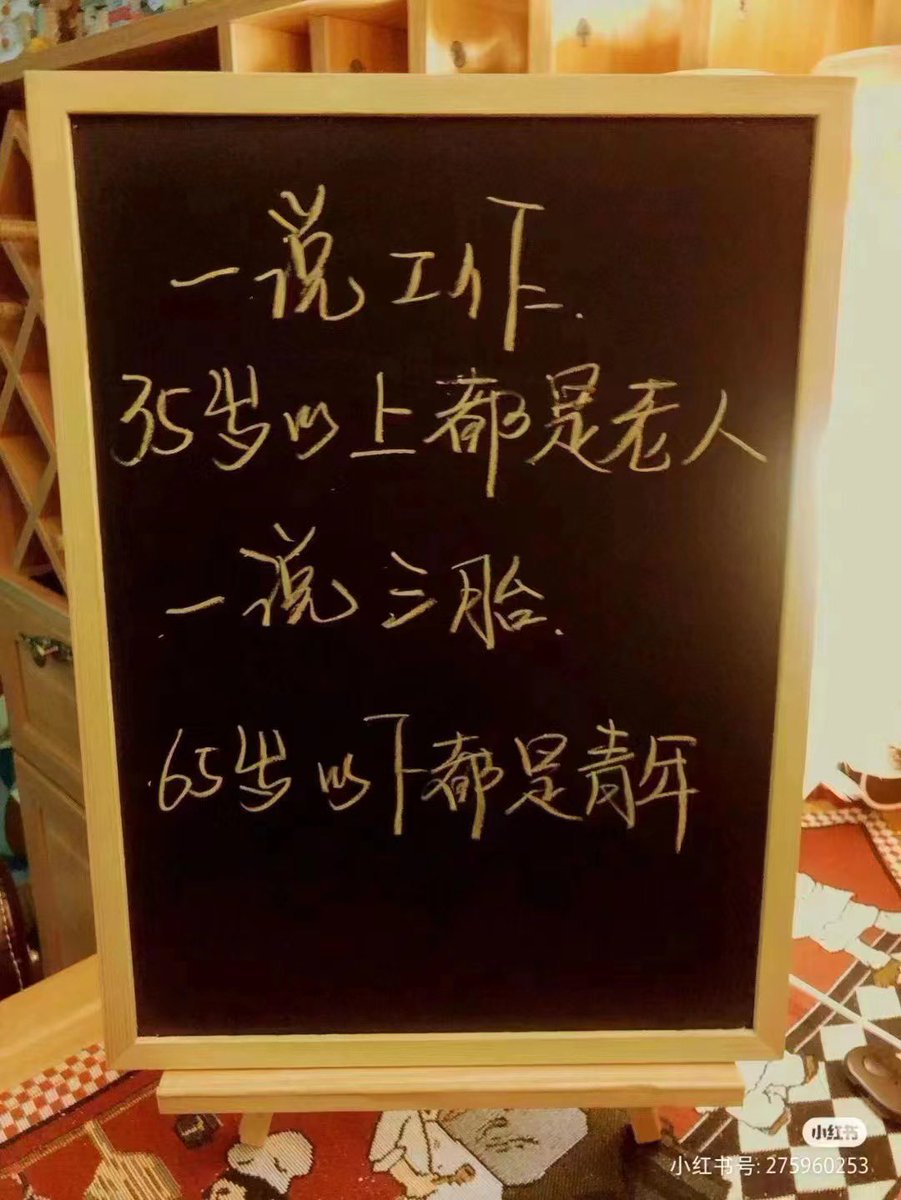 一说工作.
35岁以上都是老人
一说三胎.
65岁以下都是青年
小红书
小红书号: 275960253